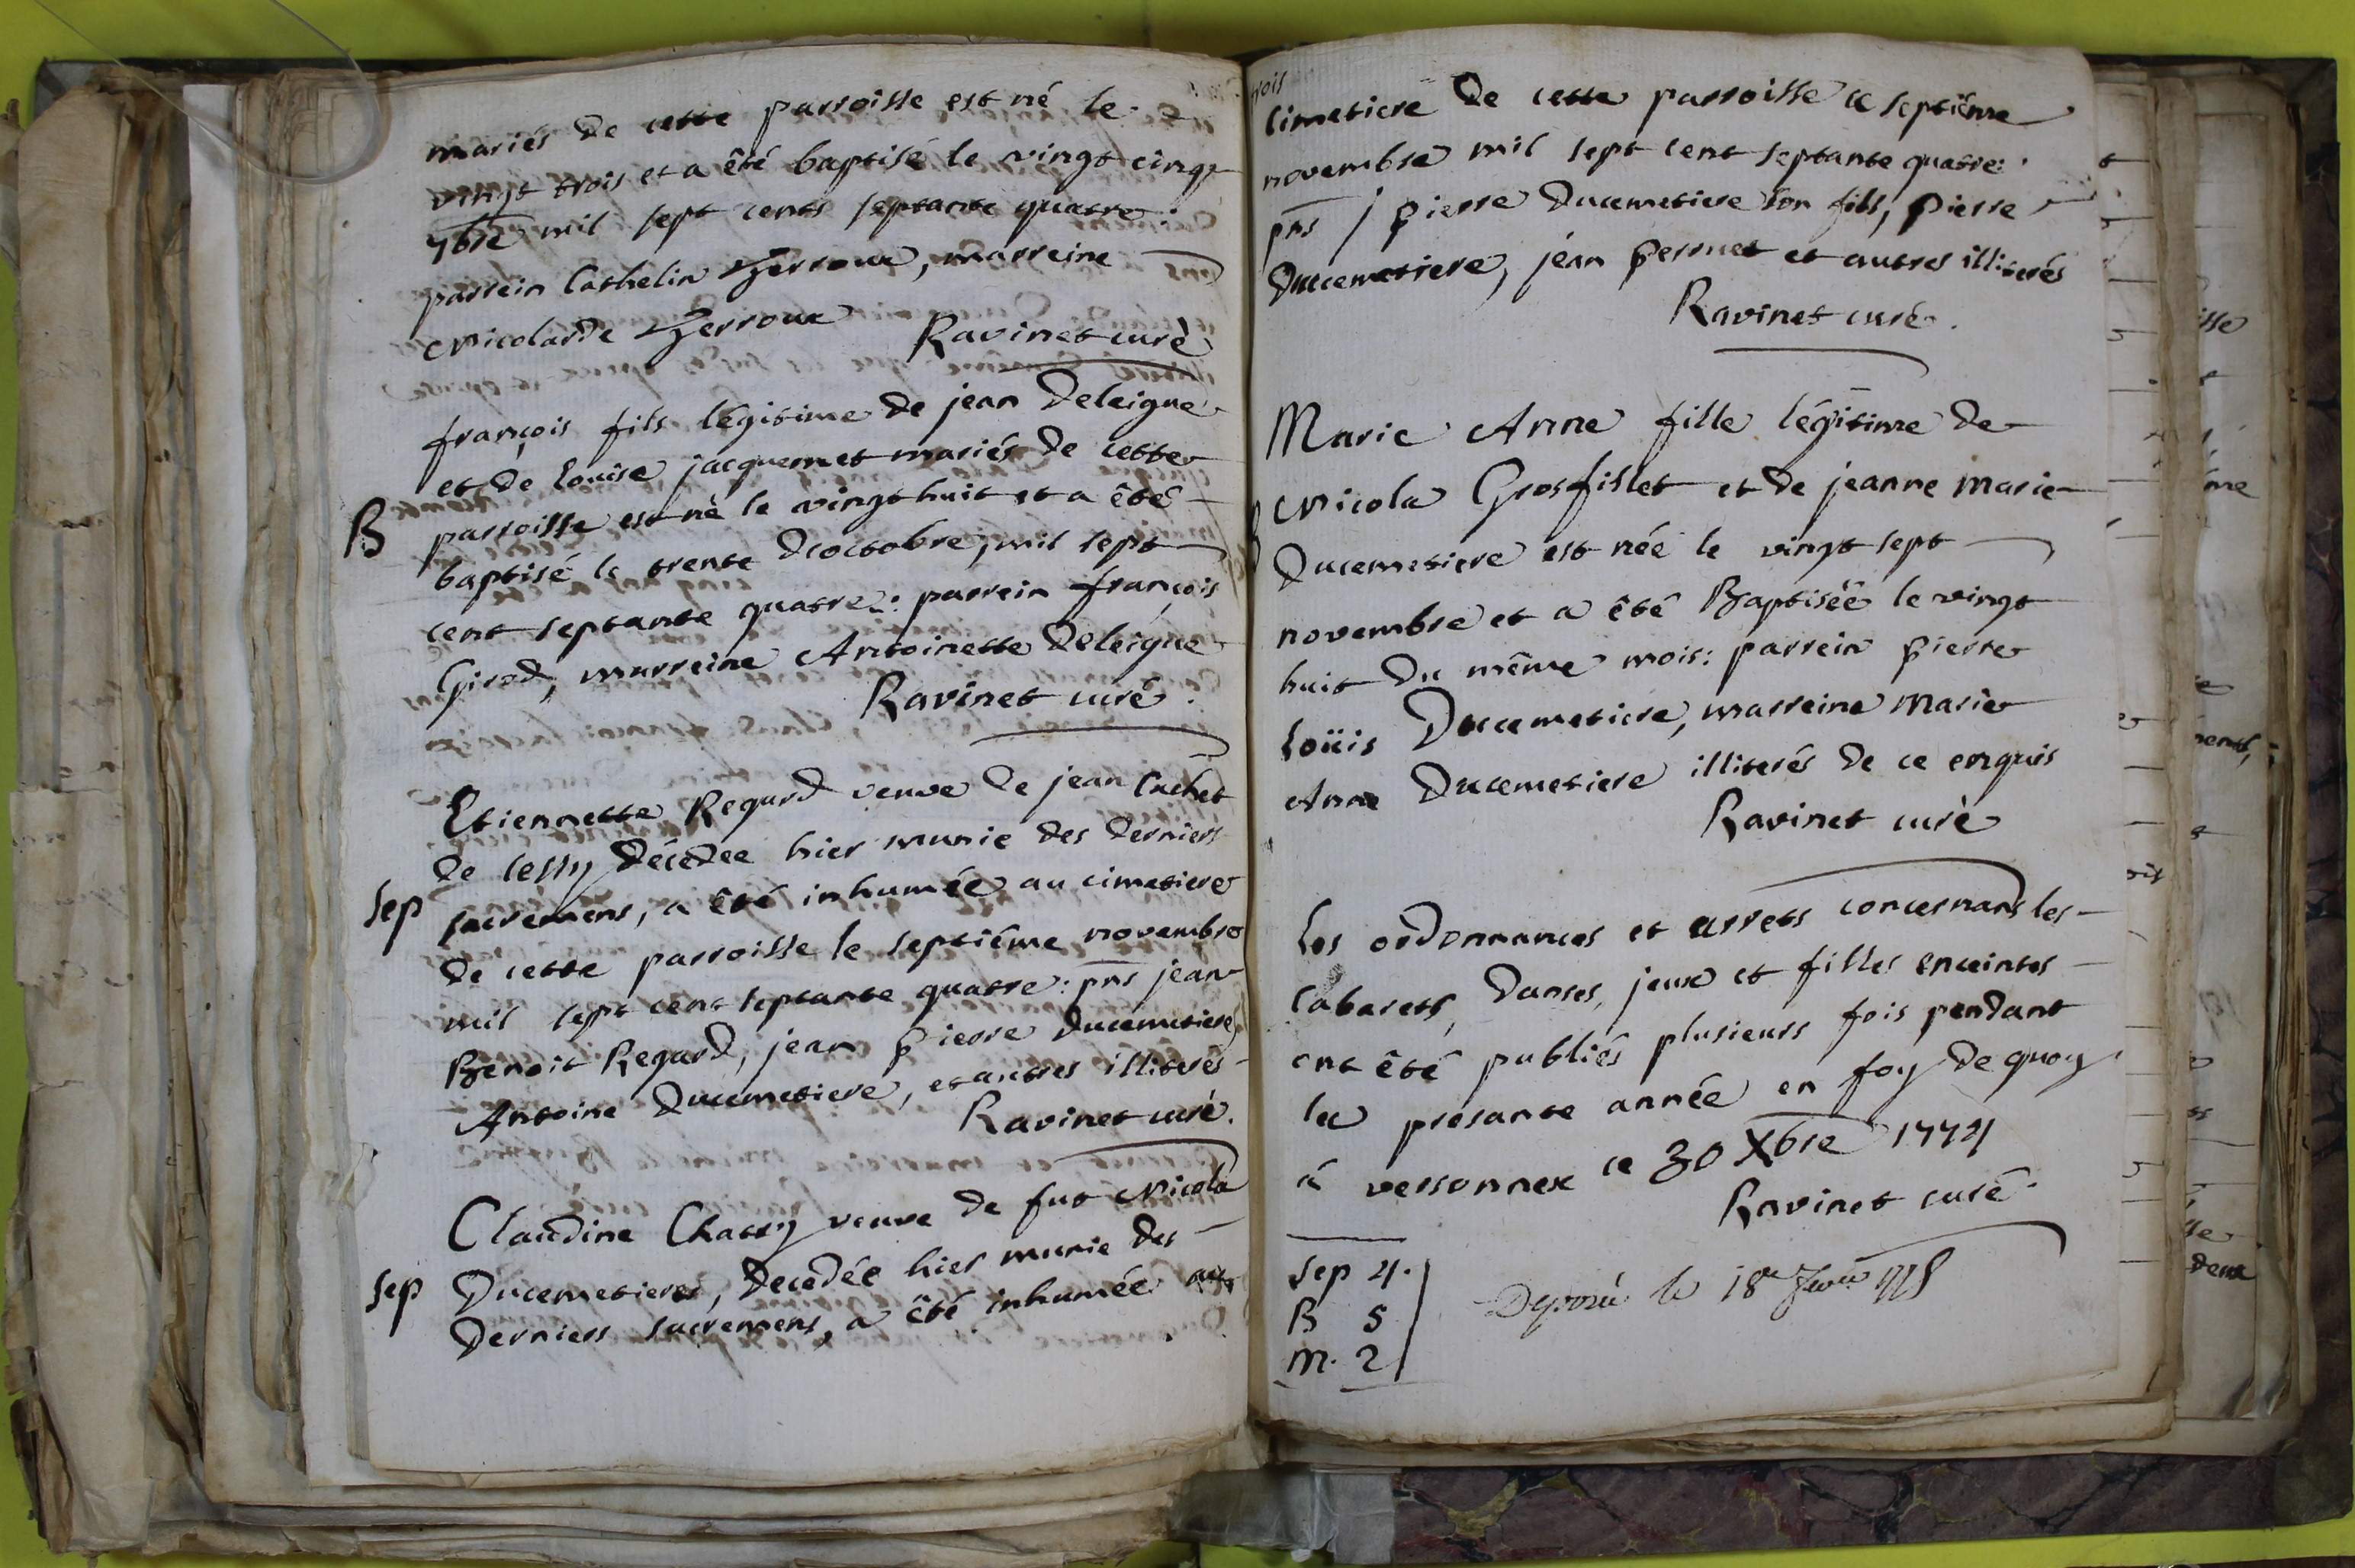 mariés de cette parroisse est né le
vingt trois et a êté baptisé le vingt cinq
7bre mil sept cents septante quatre:
parrein Cathelin Perroux, marreine
Nicolarde Perroux Ravinet curé
françois fils légitime de jean Deleigue
et de Louise jacquemet mariés de cette
B parroisse est né le vingt huit et a êté
baptisé le trente d'octobre, mil sept
cent septante quatre: parrein françois
Girod, marreine Antoinette Deleigue
Ravinet curé.
Etiennette Regard veuve de jean Cachet
de Cessy décedée hier munie des derniers
sep sacremens, a êté inhumée au cimetiere
de cette parroisse le septiême novembre
mil sept cent septante quatre: pns jean
Benoit Regard, jean pierre Ducemetiere,
Antoine Ducemetiere, et autres illiterés
Ravinet curé.
Claudine Chatty veuve de fut Nicola
sep Ducemetiere, decedée hier munie des
derniers sacremens, a êté inhumée au
cimetiere de cette parroisse ce septiême
novembre mil sept cent septante quatre:
pns / pierre Ducemetiere son fils, pierre
Ducemetiere, jean perruet et autres illiterés
Ravinet curé.
Marie Anne fille légitime de
Nicola Grosfillet et de jeanne marie
Ducemetiere est née le vingt sept
novembre et a êté Baptisée le vingt
huit du même mois: parrein pierre
Loüis Ducemetiere, marreine Marie
Anne Ducemetiere illiterés de ce enquis
Ravinet curé
Les ordonnances et arrets concernans les
Cabarets, danses, jeux et filles enceintes
ont êté publiés plusieurs fois pendant
la presante année en foy de quoy
à versonnex ce 30 Xbre 1774
Ravinet curé.
Sep 4.
B 5
m. 2
Deposé le 18e 1775